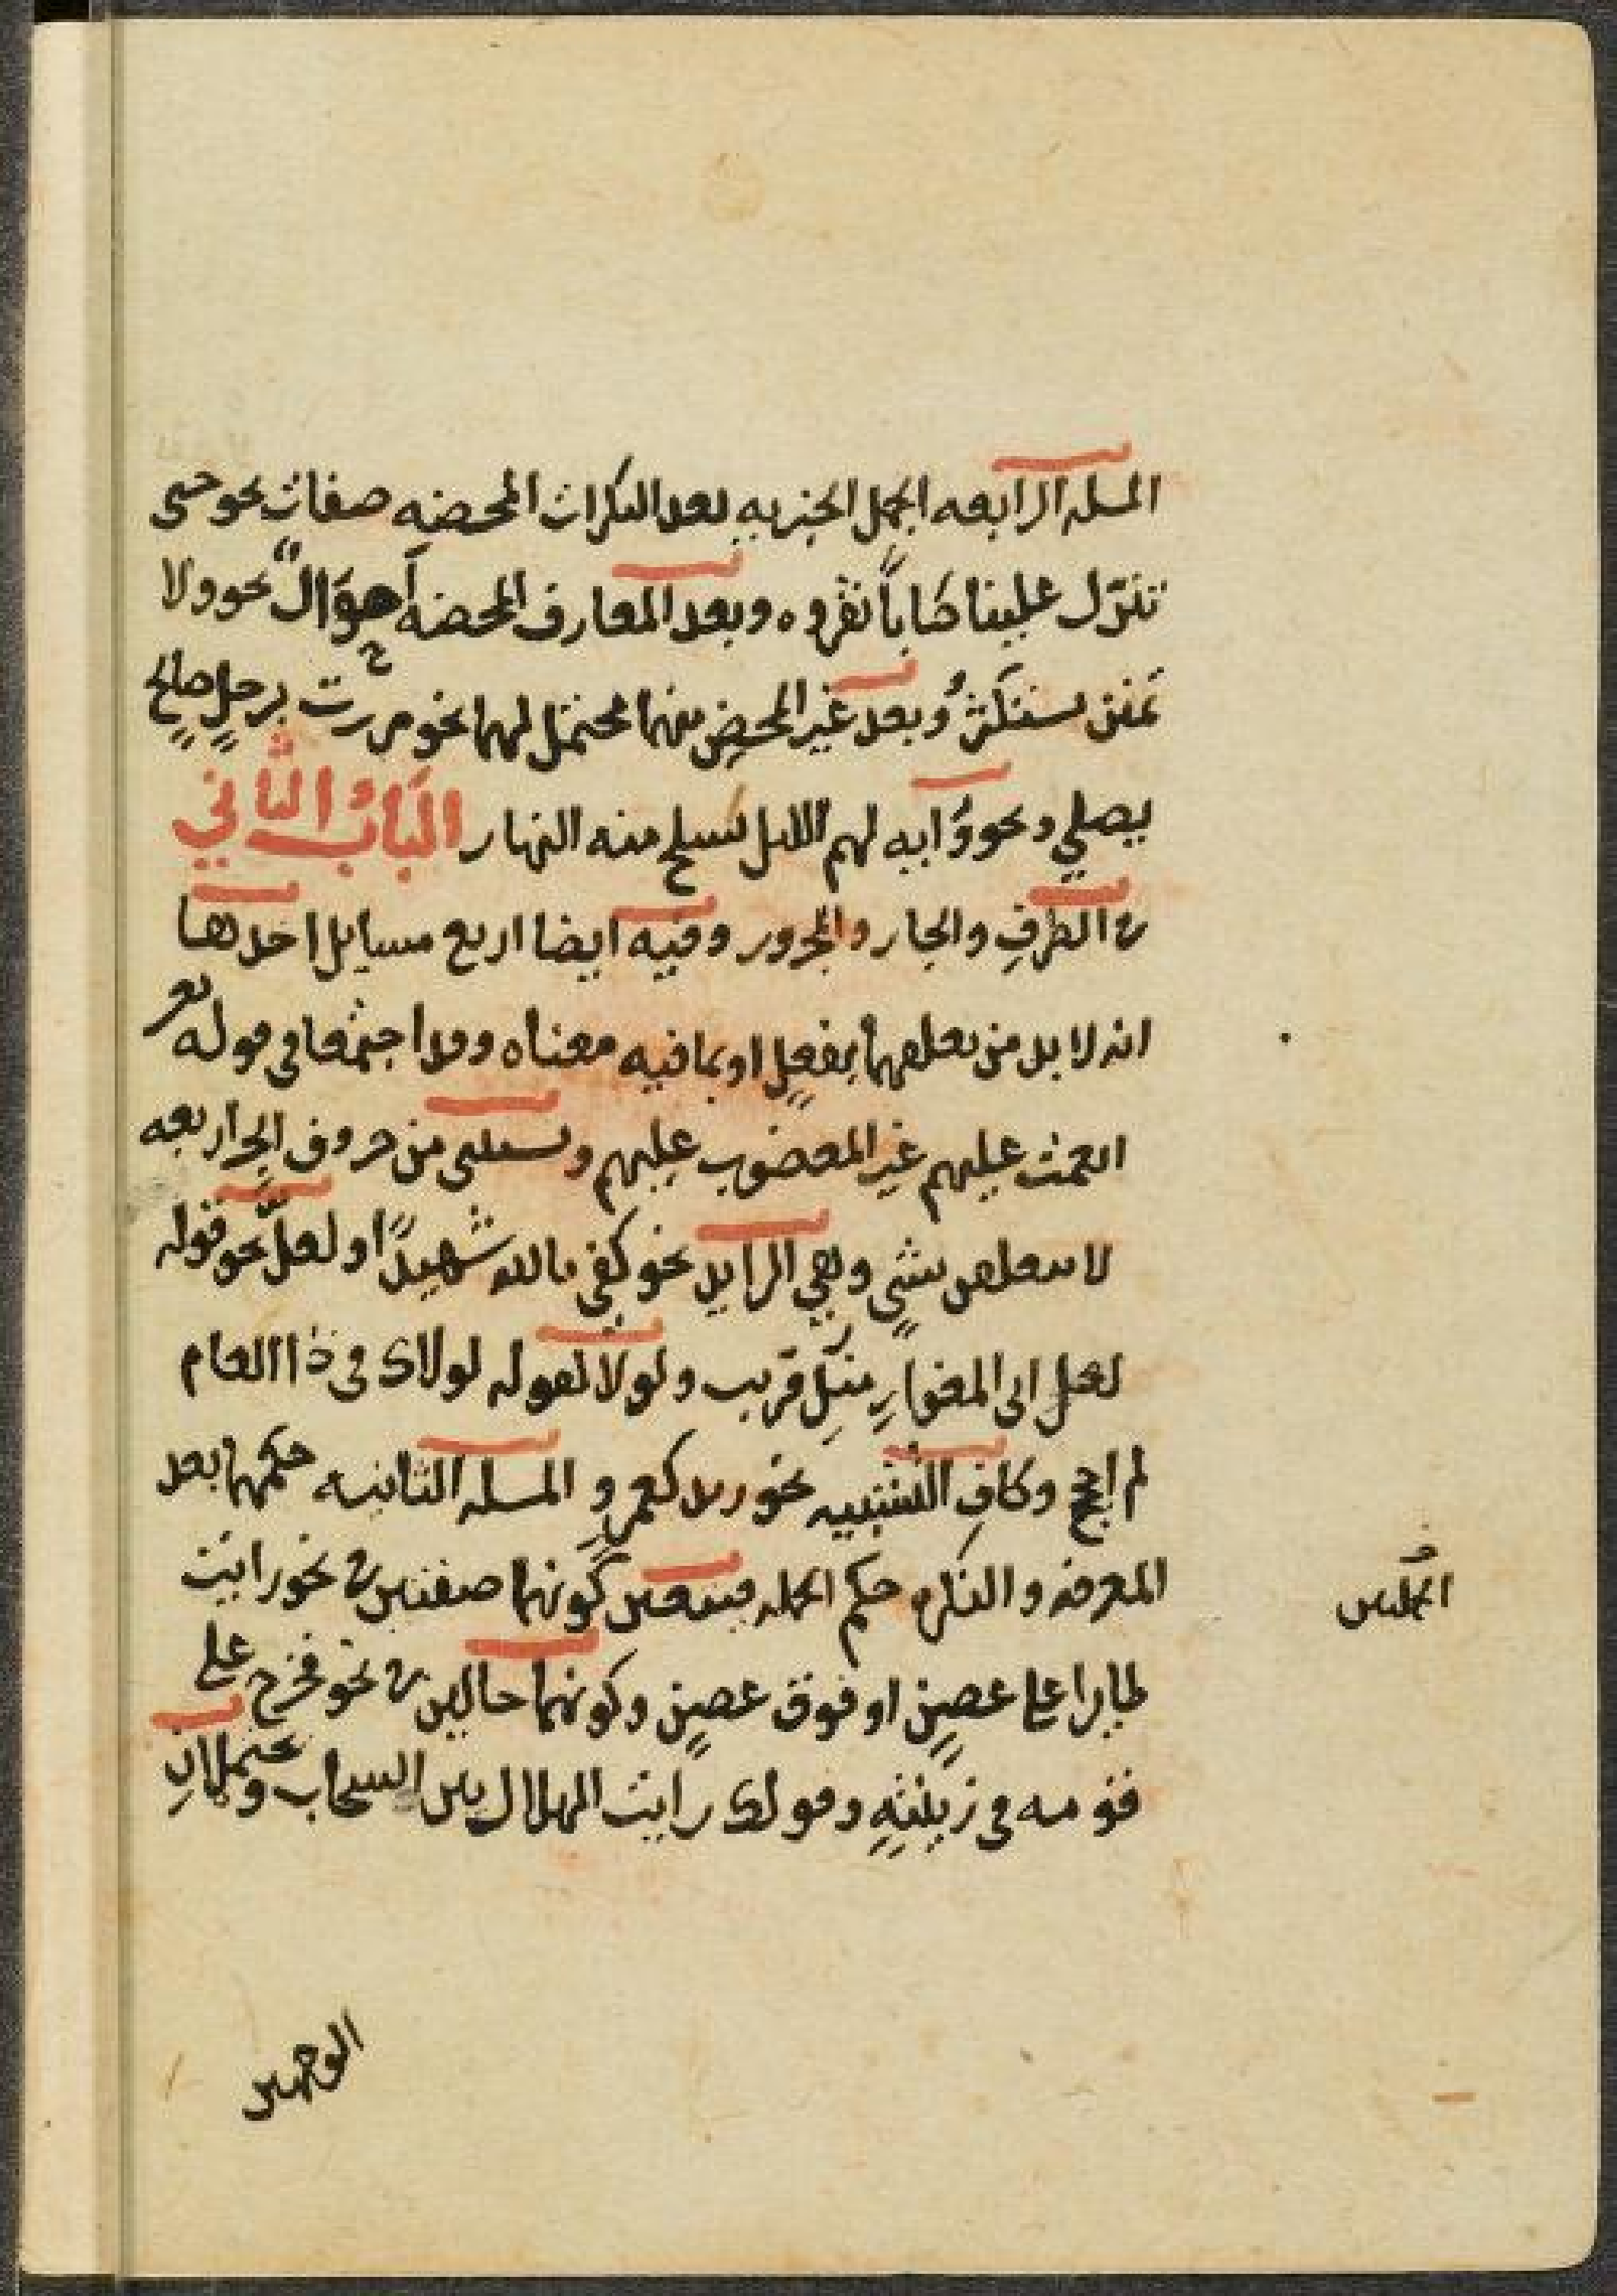 المسله الرابعه الجمل الخبريه بعد النكرات المحضه صفات نحو حتى
تنزل علينا كتاباً نقروه وبعد المعارف المحضه أحوالٌ نحو ولا
تمنن تستكثرُ وبعد غير المحضِ منهما محتمل لهما نحو مررت برجلٍ صالحٍ
يصلي ونحو وَايه لهم الليل نسلخ منه النهار البَابُ الثَّاني
في الظرفِ والجار والمجرور وفيه ايضا اربع مسايل احدها
انه لا بد من تعلقهما بفعلٍ او بما فيه معناه وقد اجتمعا في قوله تع
انعمت عليهم غير المغضوب عليهم ويستثنى من حروف الجر اربعه
لا تتعلق بشيٍ وهي الزايد نحو كفى بالله شهيداً او لعلّ نحو قوله
لعل ابى المغوارِ منكَ قريب ولولا لقوله لولاك في ذا العام
لم احجج وكافِ التشبيه نحو زيد كعمرٍو المسله الثانيه حكمهما بعد
المعرفه والنكره حكم الجمله فيتعين كونهما صفتين في نحو رايت
طايرا على غصنٍ او فوق غصنٍ وكونهما حالين في نحو فخرج على
قومه في زينتهِ وقولك رايت الهلال بين السحاب ويحتملانِ
الوجهين
الجملتين